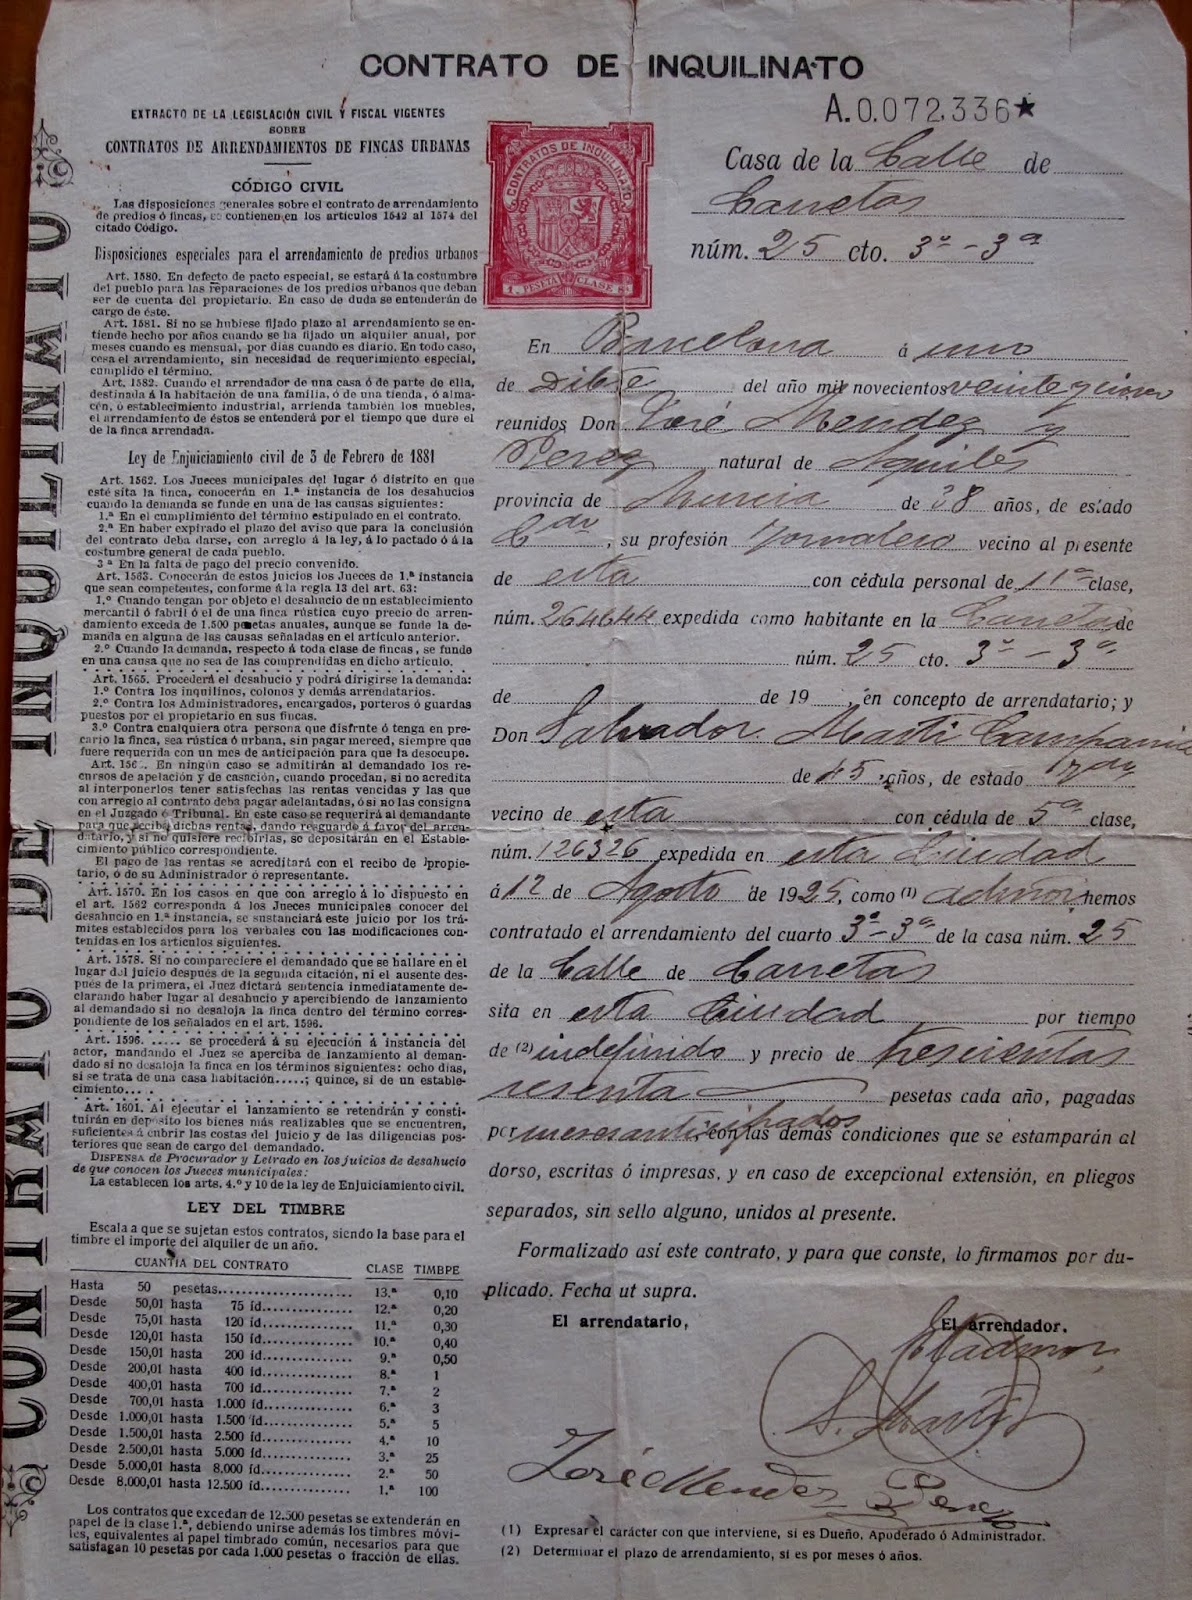 CONTRATO DE INQUILINATO
CONTRATO DE INQUILINATO
EXTRACTO DE LA LEGISLACIÓN CIVIL Y FISCAL VIGENTES
SOBRE
CONTRATOS DE ARRENDAMIENTOS DE FINCAS URBANAS
CÓDIGO CIVIL
Las disposiciones generales sobre el contrato de arrendamiento
de predios ó fincas, se contienen en los artículos 1542 al 1574 del
citado Código.
Disposiciones especiales para el arrendamiento de predios urbanos
Art. 1580. En defecto de pacto especial, se estará á la costumbre
del pueblo para las reparaciones de los predios urbanos que deban
ser de cuenta del propietario. En caso de duda se entenderán de
cargo de éste.
Art. 1581. Si no se hubiese fijado plazo al arrendamiento se en-
tiende hecho por años cuando se ha fijado un alquiler anual, por
meses cuando es mensual, por días cuando es diario. En todo caso,
cesa el arrendamiento, sin necesidad de requerimiento especial,
cumplido el término.
Art. 1582. Cuando el arrendador de una casa ó de parte de ella,
destinada á la habitación de una familia, ó de una tienda, ó alma-
cén, ó establecimiento industrial, arrienda también los muebles,
el arrendamiento de éstos se entenderá por el tiempo que dure el
de la finca arrendada.
Ley de Enjuiciamiento civil de 3 de Febrero de 1881
Art. 1562. Los Jueces municipales del lugar ó distrito en que
esté sita la finca, conocerán en 1.ª instancia de los desahucios
cuando la demanda se funde en una de las causas siguientes:
1.ª En el cumplimiento del término estipulado en el contrato.
2.ª En haber expirado el plazo del aviso que para la conclusión
del contrato deba darse, con arreglo á la ley, á lo pactado ó á la
costumbre general de cada pueblo.
3ª En la falta de pago del precio convenido.
Art. 1563. Conocerán de estos juicios los Jueces de 1.ª instancia
que sean competentes, conforme á la regla 13 del art. 63:
1.º Cuando tengan por objeto el desahucio de un establecimiento
mercantil ó fabril ó el de una finca rústica cuyo precio de arren-
damiento exceda de 1.500 pesetas anuales, aunque se funde la de-
manda en alguna de las causas señaladas en el artículo anterior.
2.º Cuando la demanda, respecto á toda clase de fincas, se funde
en una causa que no sea de las comprendidas en dicho artículo.
Art. 1565. Procederá el desahucio y podrá dirigirse la demanda:
1.º Contra los inquilinos, colonos y demás arrendatarios.
2.º Contra los Administradores, encargados, porteros ó guardas
puestos por el propietario en sus fincas.
3.º Contra cualquiera otra persona que disfrute ó tenga en pre-
cario la finca, sea rústica ó urbana, sin pagar merced, siempre que
fuere requerida con un mes de anticipación para que la desocupe.
Art. 156 . En ningún caso se admitirán al demandado los re-
cursos de apelación y de casación, cuando procedan, si no acredita
al interponerlos tener satisfechas las rentas vencidas y las que
con arreglo al contrato deba pagar adelantadas, ó si no las consigna
en el Juzgado ó Tribunal. En este caso se requerirá al demandante
para que reciba dichas rentas, dando resguardo á favor del arren-
datario, y si no quisiere recibirlas, se depositarán en el Estable-
cimiento público correspondiente.
El pago de las rentas se acreditará con el recibo de propie-
tario, ó de su Administrador ó representante.
Art. 1570. En los casos en que con arreglo á lo dispuesto en
el art. 1562 corresponda á los Jueces municipales conocer del
desahucio en 1.ª instancia, se sustanciará este juicio por los trá-
mites establecidos para los verbales con las modificaciones con-
tenidas en los artículos siguientes.
Art. 1578. Si no compareciere el demandado que se hallare en el
lugar del juicio después de la segunda citación, ni el ausente des-
pués de la primera, el Juez dictará sentencia inmediatamente de-
clarando haber lugar al desahucio y apercibiendo de lanzamiento
al demandado si no desaloja la finca dentro del término corres-
pondiente de los señalados en el art. 1596.
Art. 1596. ..... se procederá á su ejecución á instancia del
actor, mandando el Juez se aperciba de lanzamiento al deman-
dado si no desaloja la finca en los términos siguientes: ocho días,
si se trata de una casa habitación.....; quince, si de un estable-
cimiento....
Art. 1601. Al ejecutar el lanzamiento se retendrán y consti-
tuirán en depósito los bienes más realizables que se encuentren,
suficientes á cubrir las costas del juicio y de las diligencias pos-
teriores que sean de cargo del demandado.
DISPENSA de Procurador y Letrado en los juicios de desahucio
de que conocen los Jueces municipales:
La establecen los arts. 4.º y 10 de la ley de Enjuiciamiento civil.
LEY DEL TIMBRE
Escala a que se sujetan estos contratos, siendo la base para el
timbre el importe del alquiler de un año.
CUANTIA DEL CONTRATO CLASE TIMBRE
Hasta 50 pesetas 13.ª 0,10
Desde 50,01 hasta 75 íd. 12.ª 0,20
Desde 75,01 hasta 120 íd. 11.ª 0,30
Desde 120,01 hasta 150 íd. 10.ª 0,40
Desde 150,01 hasta 200 íd. 9.ª 0,50
Desde 200,01 hasta 400 íd. 8.ª 1
Desde 400,01 hasta 700 íd. 7.ª 2
Desde 700,01 hasta 1.000 íd. 6.ª 3
Desde 1.000,01 hasta 1.500 íd. 5.ª 5
Desde 1.500,01 hasta 2.500 íd. 4.ª 10
Desde 2.500,01 hasta 5.000 íd. 3.ª 25
Desde 5.000,01 hasta 8.000 íd. 2.ª 50
Desde 8.000,01 hasta 12.500 íd. 1.ª 100
Los contratos que excedan de 12.500 pesetas se extenderán en
papel de la clase 1.ª, debiendo unirse además los timbres móvi-
les, equivalentes al papel timbrado común, necesarios para que
satisfagan 10 pesetas por cada 1.000 pesetas o fracción de ellas.
CONTRATOS DE INQUILINATO
1 PESETA CLASE 8ª
A.0.072.336★
Casa de la Calle de
Carretas
núm. 25 cto. 3º - 3ª
En Barcelona á uno
de Dibre del año mil novecientos veinte y cinco
reunidos Don José Mendez y
Perez natural de Aguilas
provincia de Murcia de 38 años, de estado
C.do, su profesión Jornalero vecino al presente
de esta con cédula personal de 11ª clase,
núm. 264644 expedida como habitante en la Carretas de
núm. 25 cto. 3º - 3ª
de de 19 , en concepto de arrendatario; y
Don Salvador Martí
de 45 años, de estado
vecino de esta con cédula de 5ª clase,
núm. 126326 expedida en esta Ciudad
á 12 de Agosto de 1925, como (1) hemos
contratado el arrendamiento del cuarto 3º - 3ª de la casa núm. 25
de la Calle de Carretas
sita en esta Ciudad por tiempo
de (2) indefinido y precio de trescientas
sesenta pesetas cada año, pagadas
por meses anticipados con las demás condiciones que se estamparán al
dorso, escritas ó impresas, y en caso de excepcional extensión, en pliegos
separados, sin sello alguno, unidos al presente.
Formalizado así este contrato, y para que conste, lo firmamos por du-
plicado. Fecha ut supra.
El arrendatario, El arrendador.
S. Martí
José Mendez Perez
(1) Expresar el carácter con que interviene, si es Dueño, Apoderado ó Administrador.
(2) Determinar el plazo de arrendamiento, si es por meses ó años.